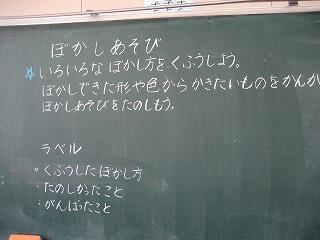 ぼかしあそび
☆いろいろな ぼかし方を くふうしよう。
ぼかしできた形や色から かきたいものを かんが
ぼかしあそびを たのしもう。
ラベル
・くふうしたぼかし方
・たのしかったこと
・がんばったこと